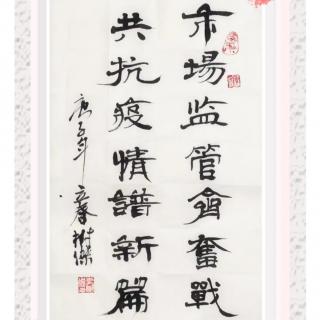 市場监管齊奮戰
共抗疫情譜新篇
庚子年立春